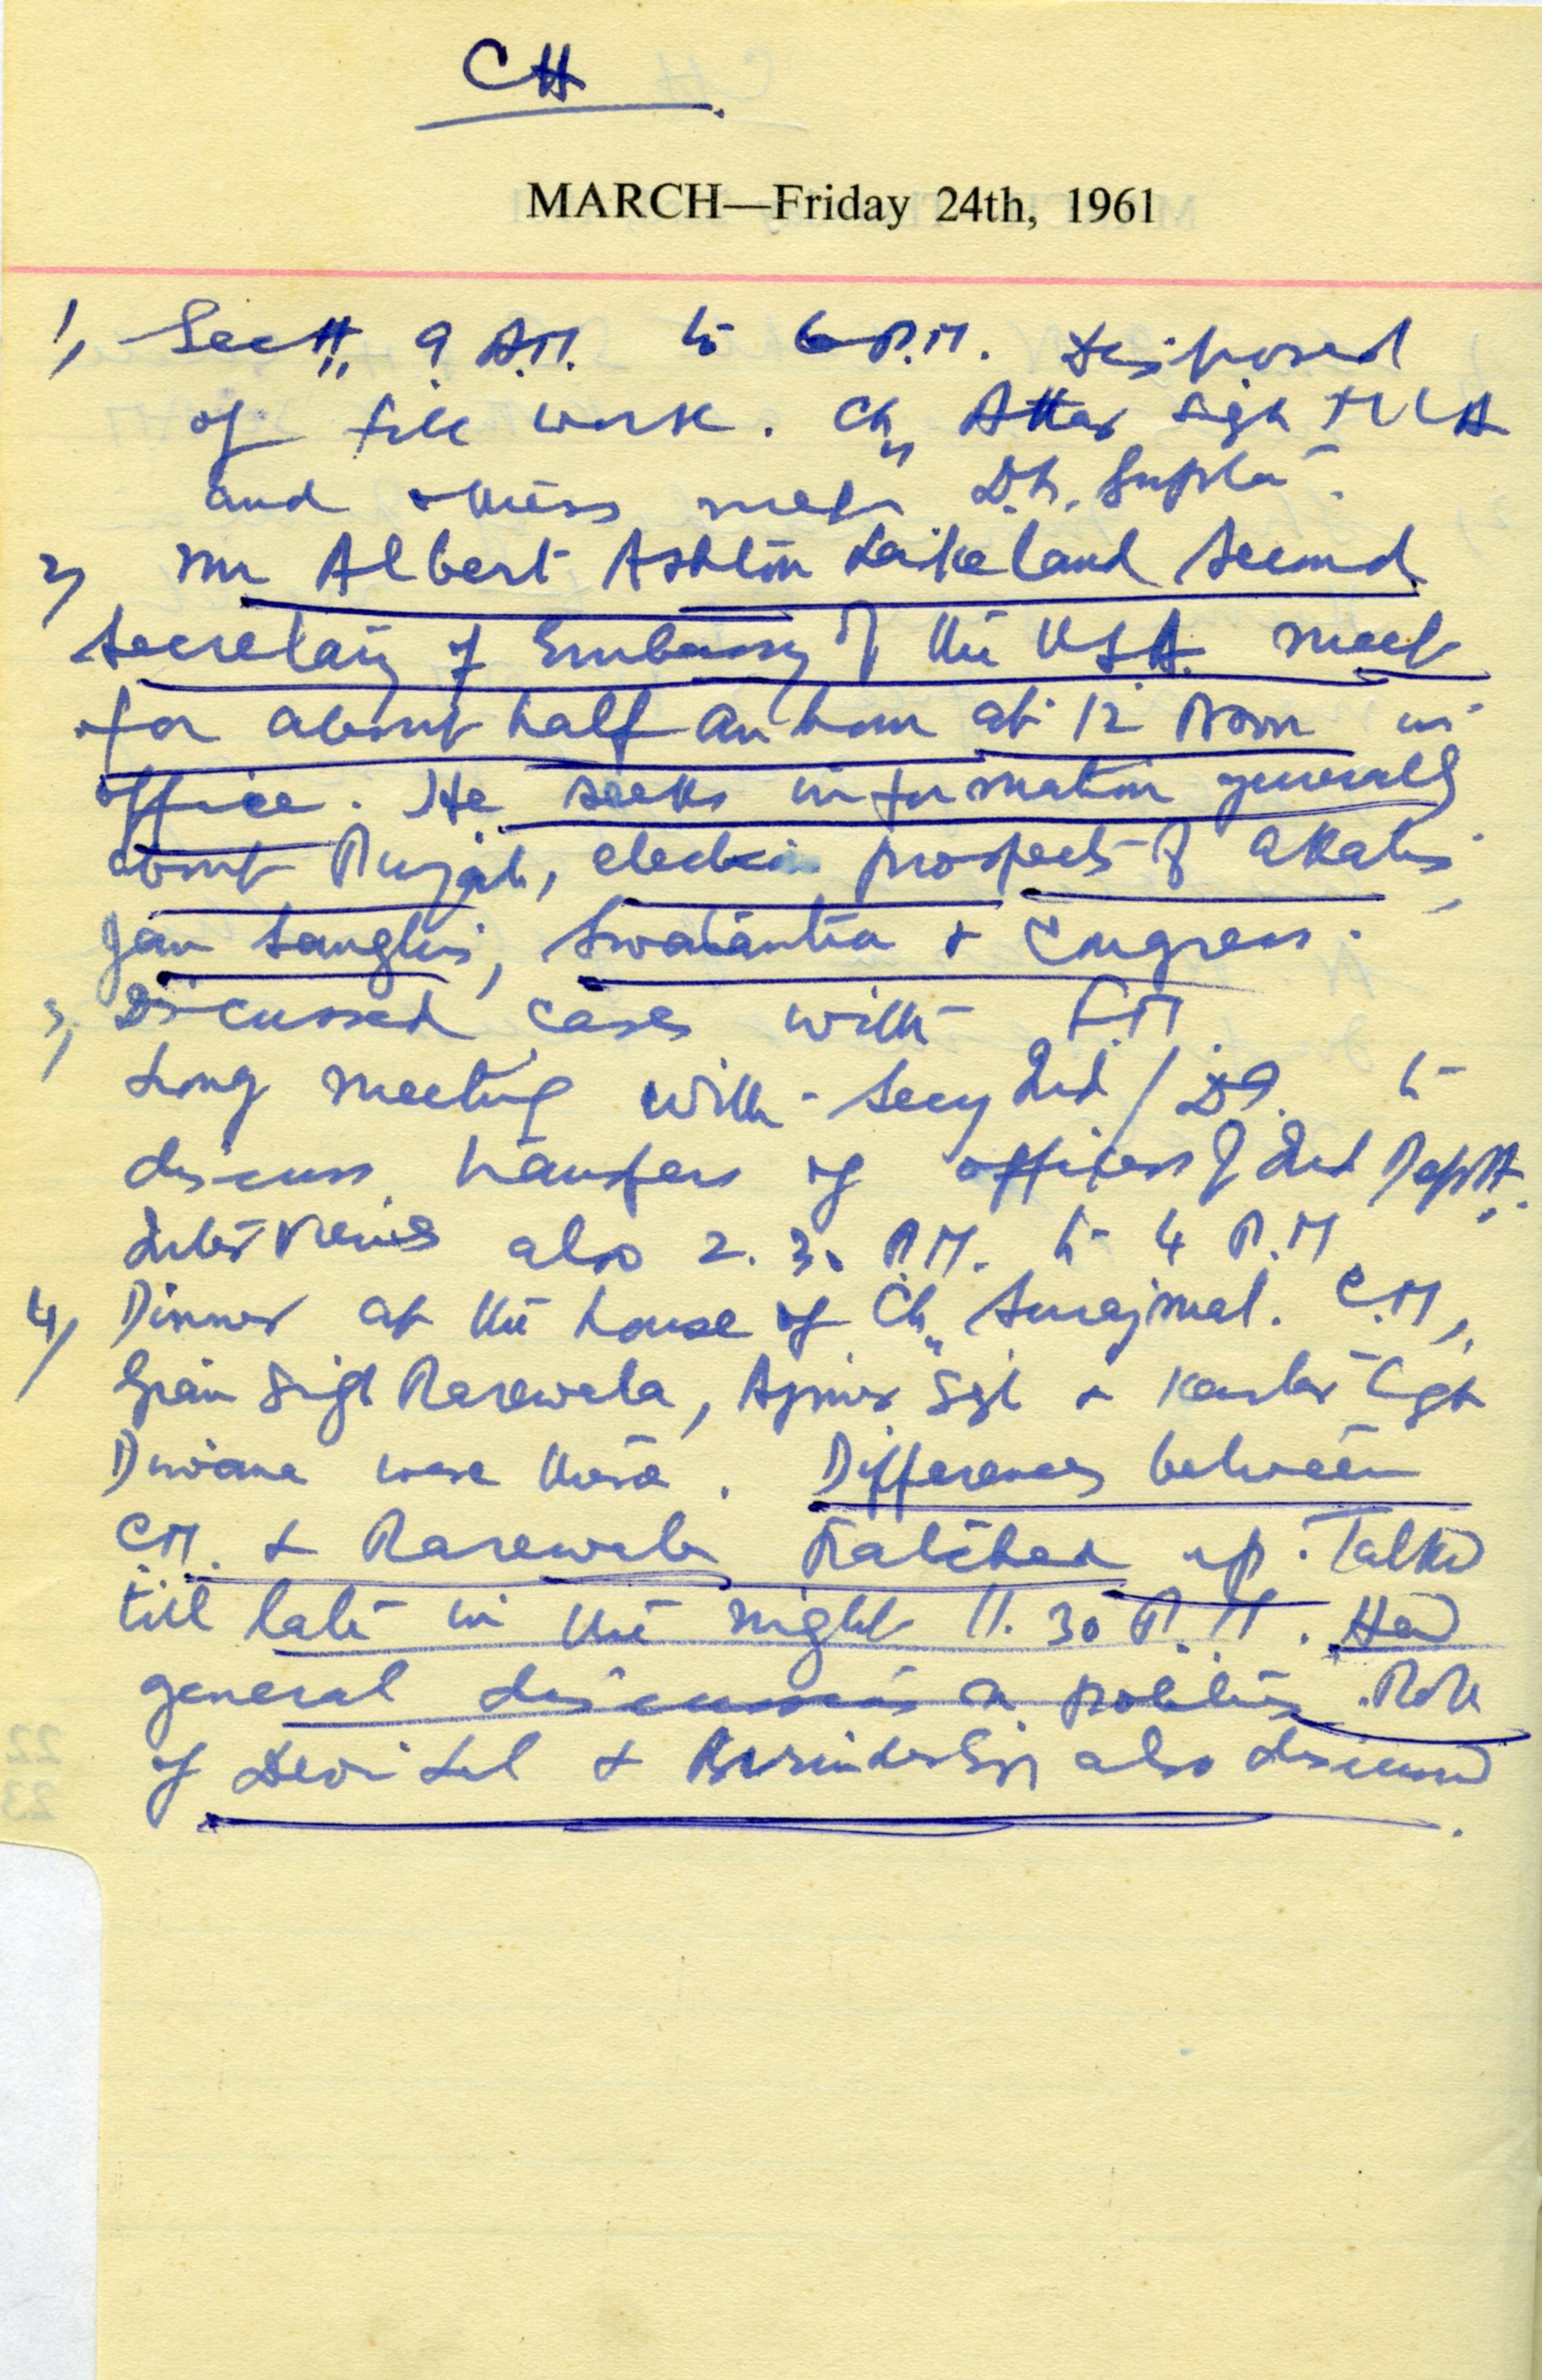 CH
MARCH—Friday 24th, 1961
1, Sectt. 9 A.M. to 6 P.M. Disposed
of file work. Ch. Attar Singh MLA
and others meet. Dr. Gupta.
2, Mr Albert Ashton Lakeland Second
Secretary of Embassy of the USA. meet
for about half an hour at 12 Noon in
office. He seeks information generally
about Punjab, election prospects of Akalis,
Jan Sanghis, Swatantra & Congress.
3, Discussed cases with F.M.
Long meeting with Secy Ind / DI. to
discuss transfers of officers of Ind Deptt.
Interviews also 2.30 P.M. to 4 P.M
4, Dinner at the house of Ch. Surajmal. C.M,
Gian Singh Rarewala, Ajmer Singh &
were there. Differences between
C.M. & Rarewala Patched up. Talked
till late in the night 11.30 P.M. Had
general discussion on politics. Role
of Devi Lal & also discussed.
22
23